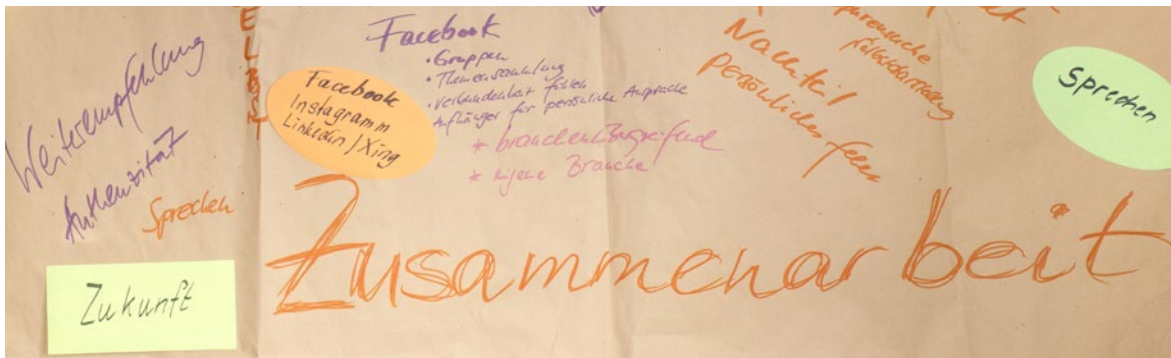 Weiterempfehlung
Authenzität
Sprechen
Zukunft
Facebook
Instagramm
LinkedIn / Xing
Facebook
• Gruppen
• Themensammlung
• Verbundenheit fühlen
Aufhänger für persönliche Ansprache
* branchenübergreifend
* eigene Branche
Nachteil
Persönliches
Sprechen
Zusammenarbeit